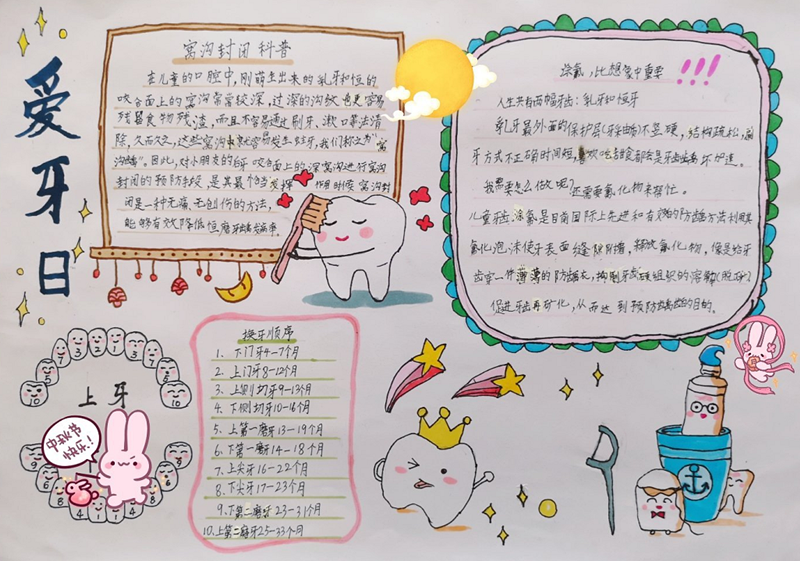 爱牙日
窝沟封闭科普
在儿童的口腔中，刚萌生出来的乳牙和恒的
咬合面上的窝沟常常较深，过深的沟纹也更容易
残留食物残渣，而且不容易通过刷牙、漱口等法清
除，久而久之，这些窝沟中就容易发生蛀牙，我们称之为“窝
沟龋”。因此，对小朋友的牙咬合面上的深窝沟进行窝沟
封闭的预防手段，是其最个 作用时候 窝沟封
闭是一种无痛、无创伤的方法，
能够有效降低恒磨牙龋
涂氟，比想象中重要!!!
人生共有两幅牙齿：乳牙和恒牙
乳牙最外面的保护层(牙釉质)不坚硬，结构疏松，刷
牙方式不正确时间短，喜欢吃甜食都会是牙齿 坏加速。
我需要怎么做呢?还需要氟化物来帮忙。
儿童牙齿涂氟是目前国际上先进和有效的防龋方法利用
氟化泡沫使牙表面缝隙 ，释放氟化物，像是给牙
齿穿一件薄薄的防龋衣，抑制牙 硬组织的溶解
促进牙齿再矿化，从而达到预防龋齿的目的。
换牙顺序
1、下门牙4-7个月
2、上门牙8-12个月
3、上侧切牙9-13个月
4、下侧切牙10-16个月
5、上第一磨牙13-19个月
6、下第一磨牙14-18个月
7、上尖牙16-22个月
8、下尖牙17-23个月
9、下第二磨牙23-31个月
10、上第二磨牙25-33个月
上牙